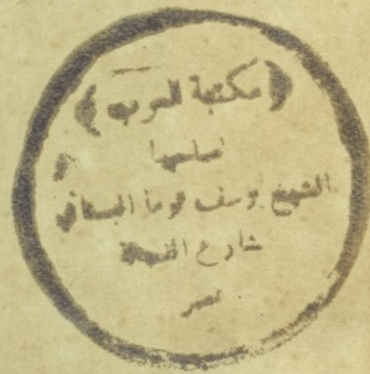 (مكتبة العرب)
لصاحبها
الشيخ يوسف توما البستاني
شارع الفجالة
مصر